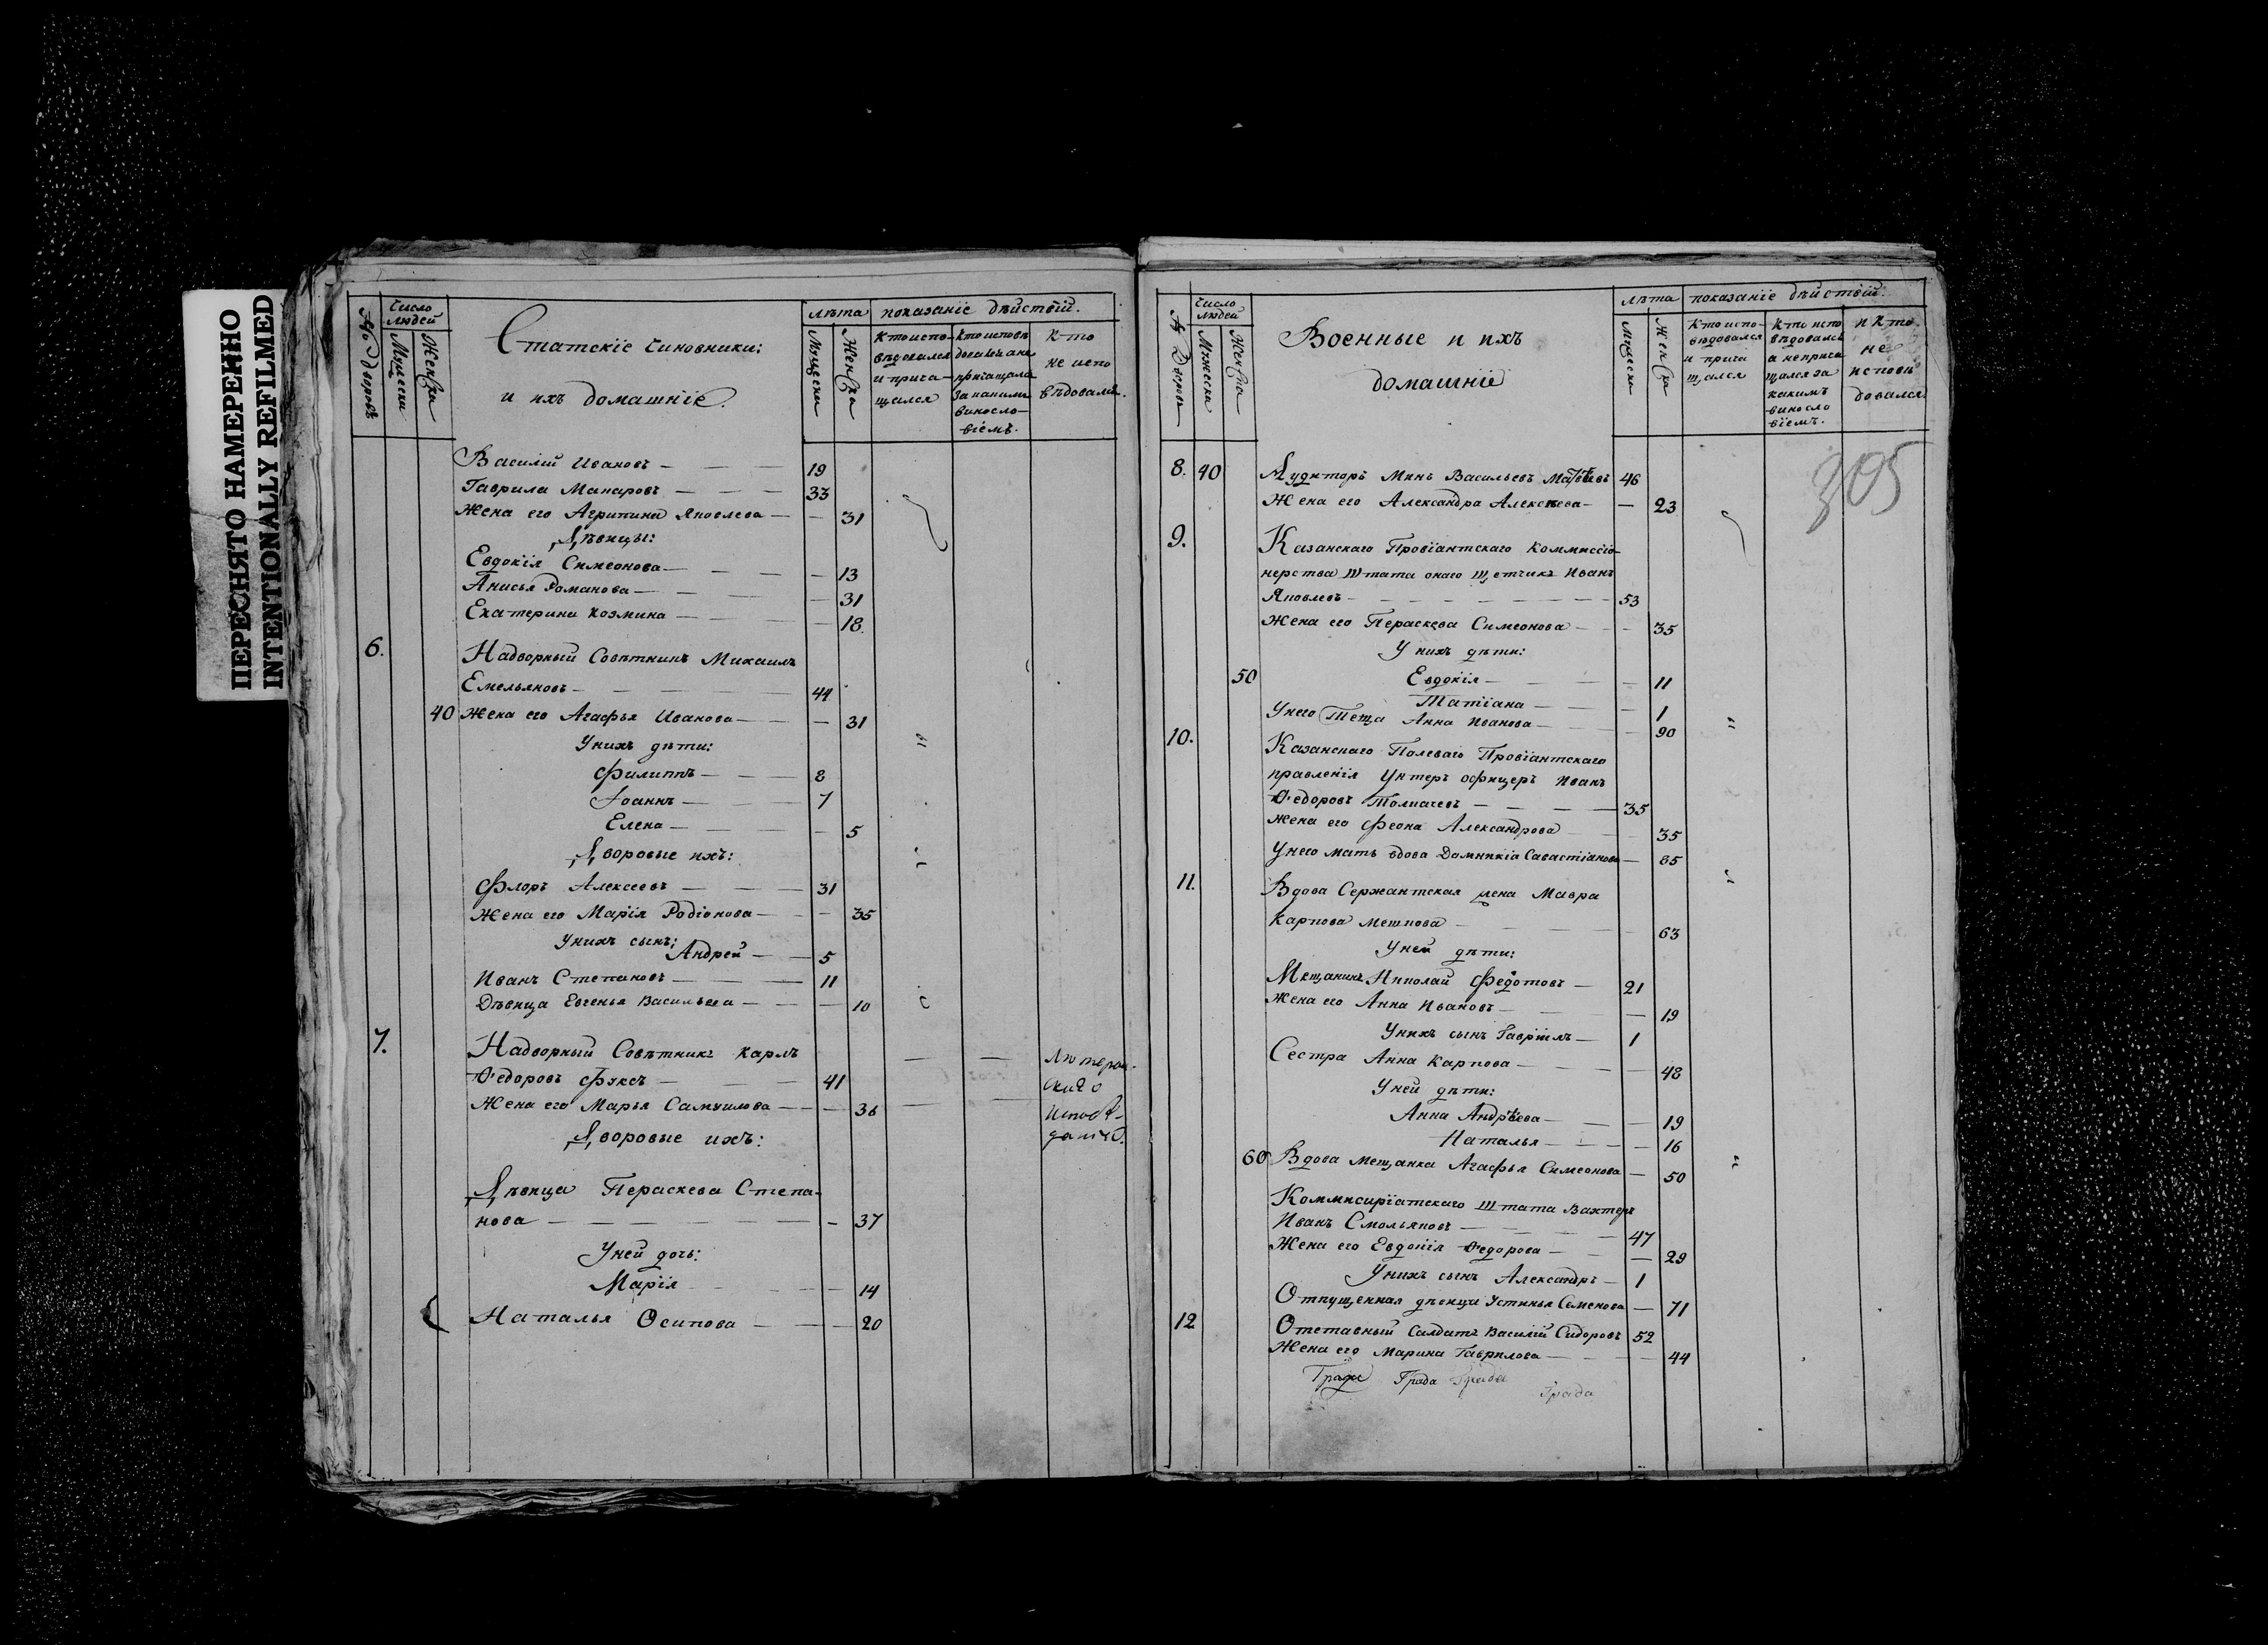 ПЕРЕСНЯТО НАМЕРЕННО
INTENTIONALLY REFILMED
№ Дворовъ
Число людей
Мужеска
Женска
Статскіе Чиновники:
и ихъ домашніе.
лѣта
Мужеска
Женска
показаніе дѣйствій.
Кто испо-
вѣдовался
и прича-
щался
Кто исповѣ
довалъ а не
причащался
за какимъ
винosло-
віемъ.
Кто
не испо
вѣдовался.
Василій Ивановъ — 19
Гаврила Макаровъ — 33
Жена его Агрипина Яковлева — 31
Дѣвицы:
Евдокія Симеонова — 13
Анисья Романова — 31
Екатерина Козмина — 18.
6. Надворный Совѣтникъ Михаилъ
Емельяновъ — 44
40 Жена его Агафья Иванова — 31
У нихъ дѣти:
Филиппъ — 8
Іоаннъ — 7
Елена — 5
Дворовые ихъ:
Флоръ Алексеевъ — 31
Жена его Марія Родіонова — 35
У нихъ сынъ:
Андрей — 5
Иванъ Степановъ — 11
Дѣвица Евгенья Васильева — 10
7. Надворный Совѣтникъ Карлъ
Ѳедоровъ Фуксъ — 41
Жена его Марья Самуилова — 36
Лютеран-
скаго
Исповѣ-
данія.
Дворовые ихъ:
Дѣвица Пераскева Степа-
нова — 37
У ней дочь:
Марія — 14
Наталья Осипова — 20
№ Дворовъ
Число людей
Мужеска
Женска
Военные и ихъ
домашніе
лѣта
Мужеска
Женска
показаніе дѣйствій.
Кто испо-
вѣдовался
и прича
щался
Кто испо
вѣдовался
а неприча
щался за
какимъ
винословіемъ.
и Кто
не
исповѣ
довался
305
8. 40 Аудиторъ Минъ Васильевъ Матвѣевъ 46
Жена его Александра Алексѣева — 23
9. Казанскаго Провіантскаго Коммиссіо-
нерства Штата онаго Щетчикъ Иванъ
Яковлевъ — 53
Жена его Пераскева Симеонова — 35
У нихъ дѣти:
50 Евдокія — 11
Татіана — 1
У него Теща Анна Иванова — 90
10. Казанскаго Полеваго Провіантскаго
правленія Унтеръ офицеръ Иванъ
Ѳедоровъ Толмачевъ — 35
Жена его Феона Александрова — 35
У него мать вдова Домникіа Савастіанова — 85
11. Вдова Сержантская жена Мавра
Карпова Мешкова — 63
У ней дѣти:
Мещанинъ Николай Федотовъ — 21
Жена его Анна Ивановъ — 19
У нихъ сынъ Гавріилъ — 1
Сестра Анна Карпова — 48
У ней дѣти:
Анна Андрѣева — 19
Наталья — 16
60 Вдова Мещанка Агафья Симеонова — 50
Коммисиріатскаго Штата Вахтеръ
Иванъ Смольяновъ — 47
Жена его Евдокія Ѳедорова — 29
У нихъ сынъ Александръ — 1
Отпущенная дѣвица Устинья Семенова — 71
12 Отставный Салдатъ Василій Сидоровъ 52
Жена его Марина Гаврилова — 44
Града Града Града
Града